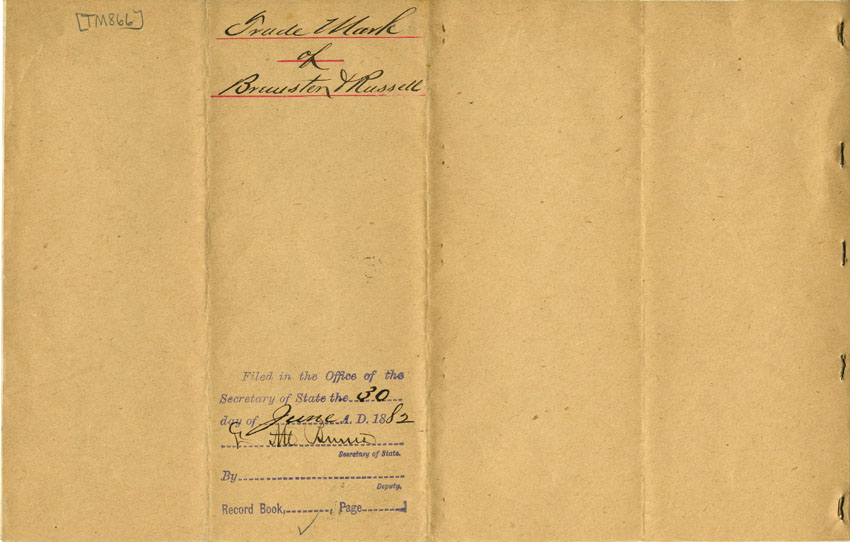 [TM866]
Trade Mark
of
Brewster & Russell
Filed in the Office of the
Secretary of State the 30
day of June A. D. 1882
Secretary of State.
By
Deputy.
Record Book, , Page